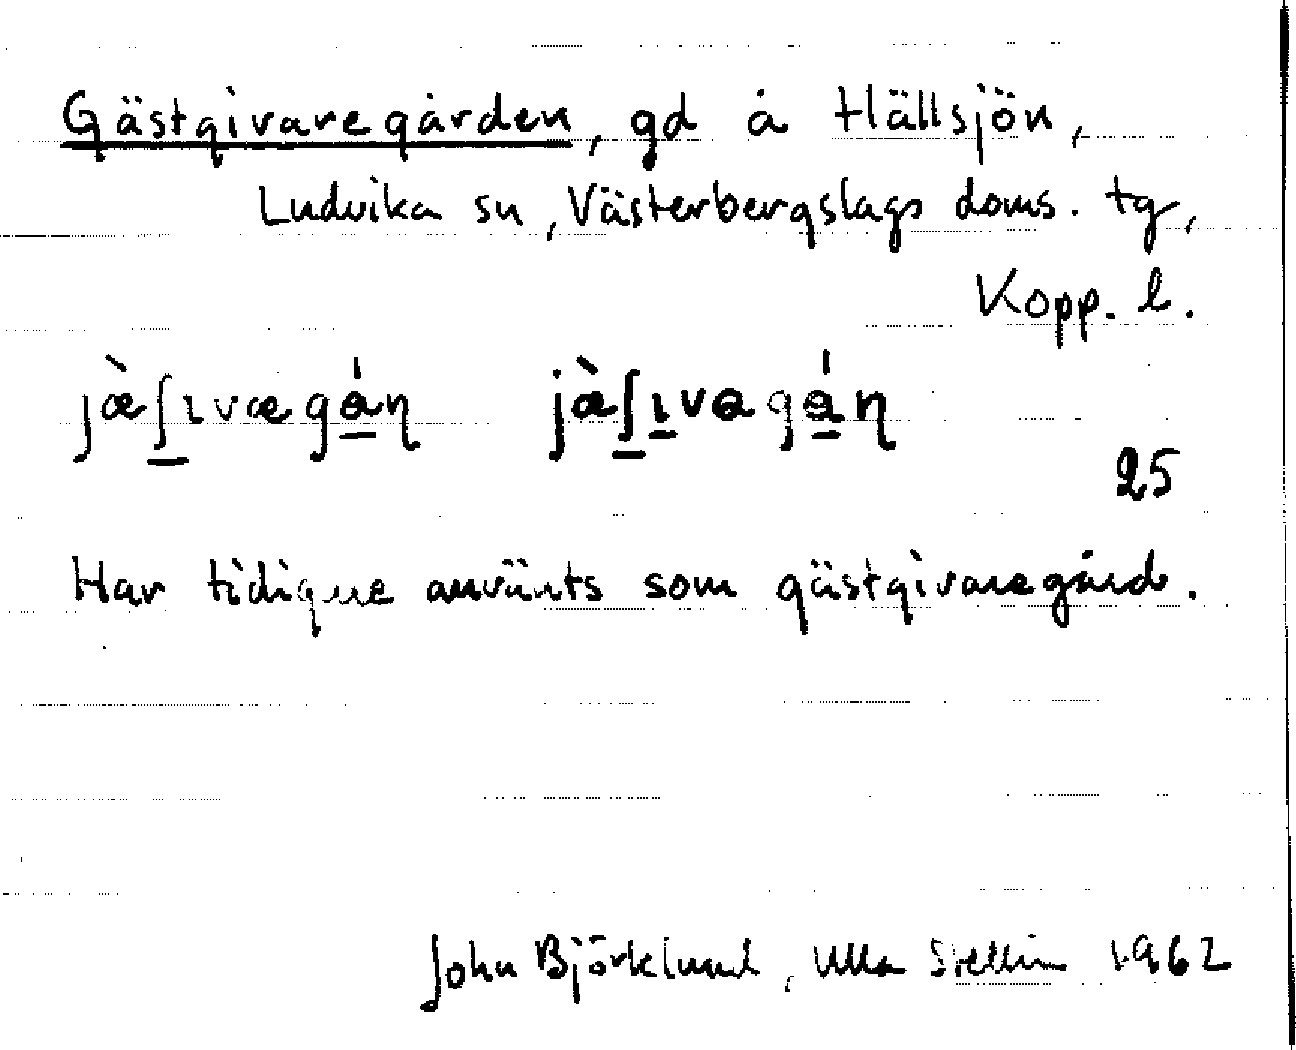 Gästgivaregården, gd å Hällsjön,
Ludvika sn, Västerbergslags doms. tg,
Kopp. l.
jæ̀ʃıvægá̱ƞ jæ̀ʃı̱vagá̱ƞ
25
Har tidigare använts som gästgivaregård.
John Björklund, Ulla Stellin 1962